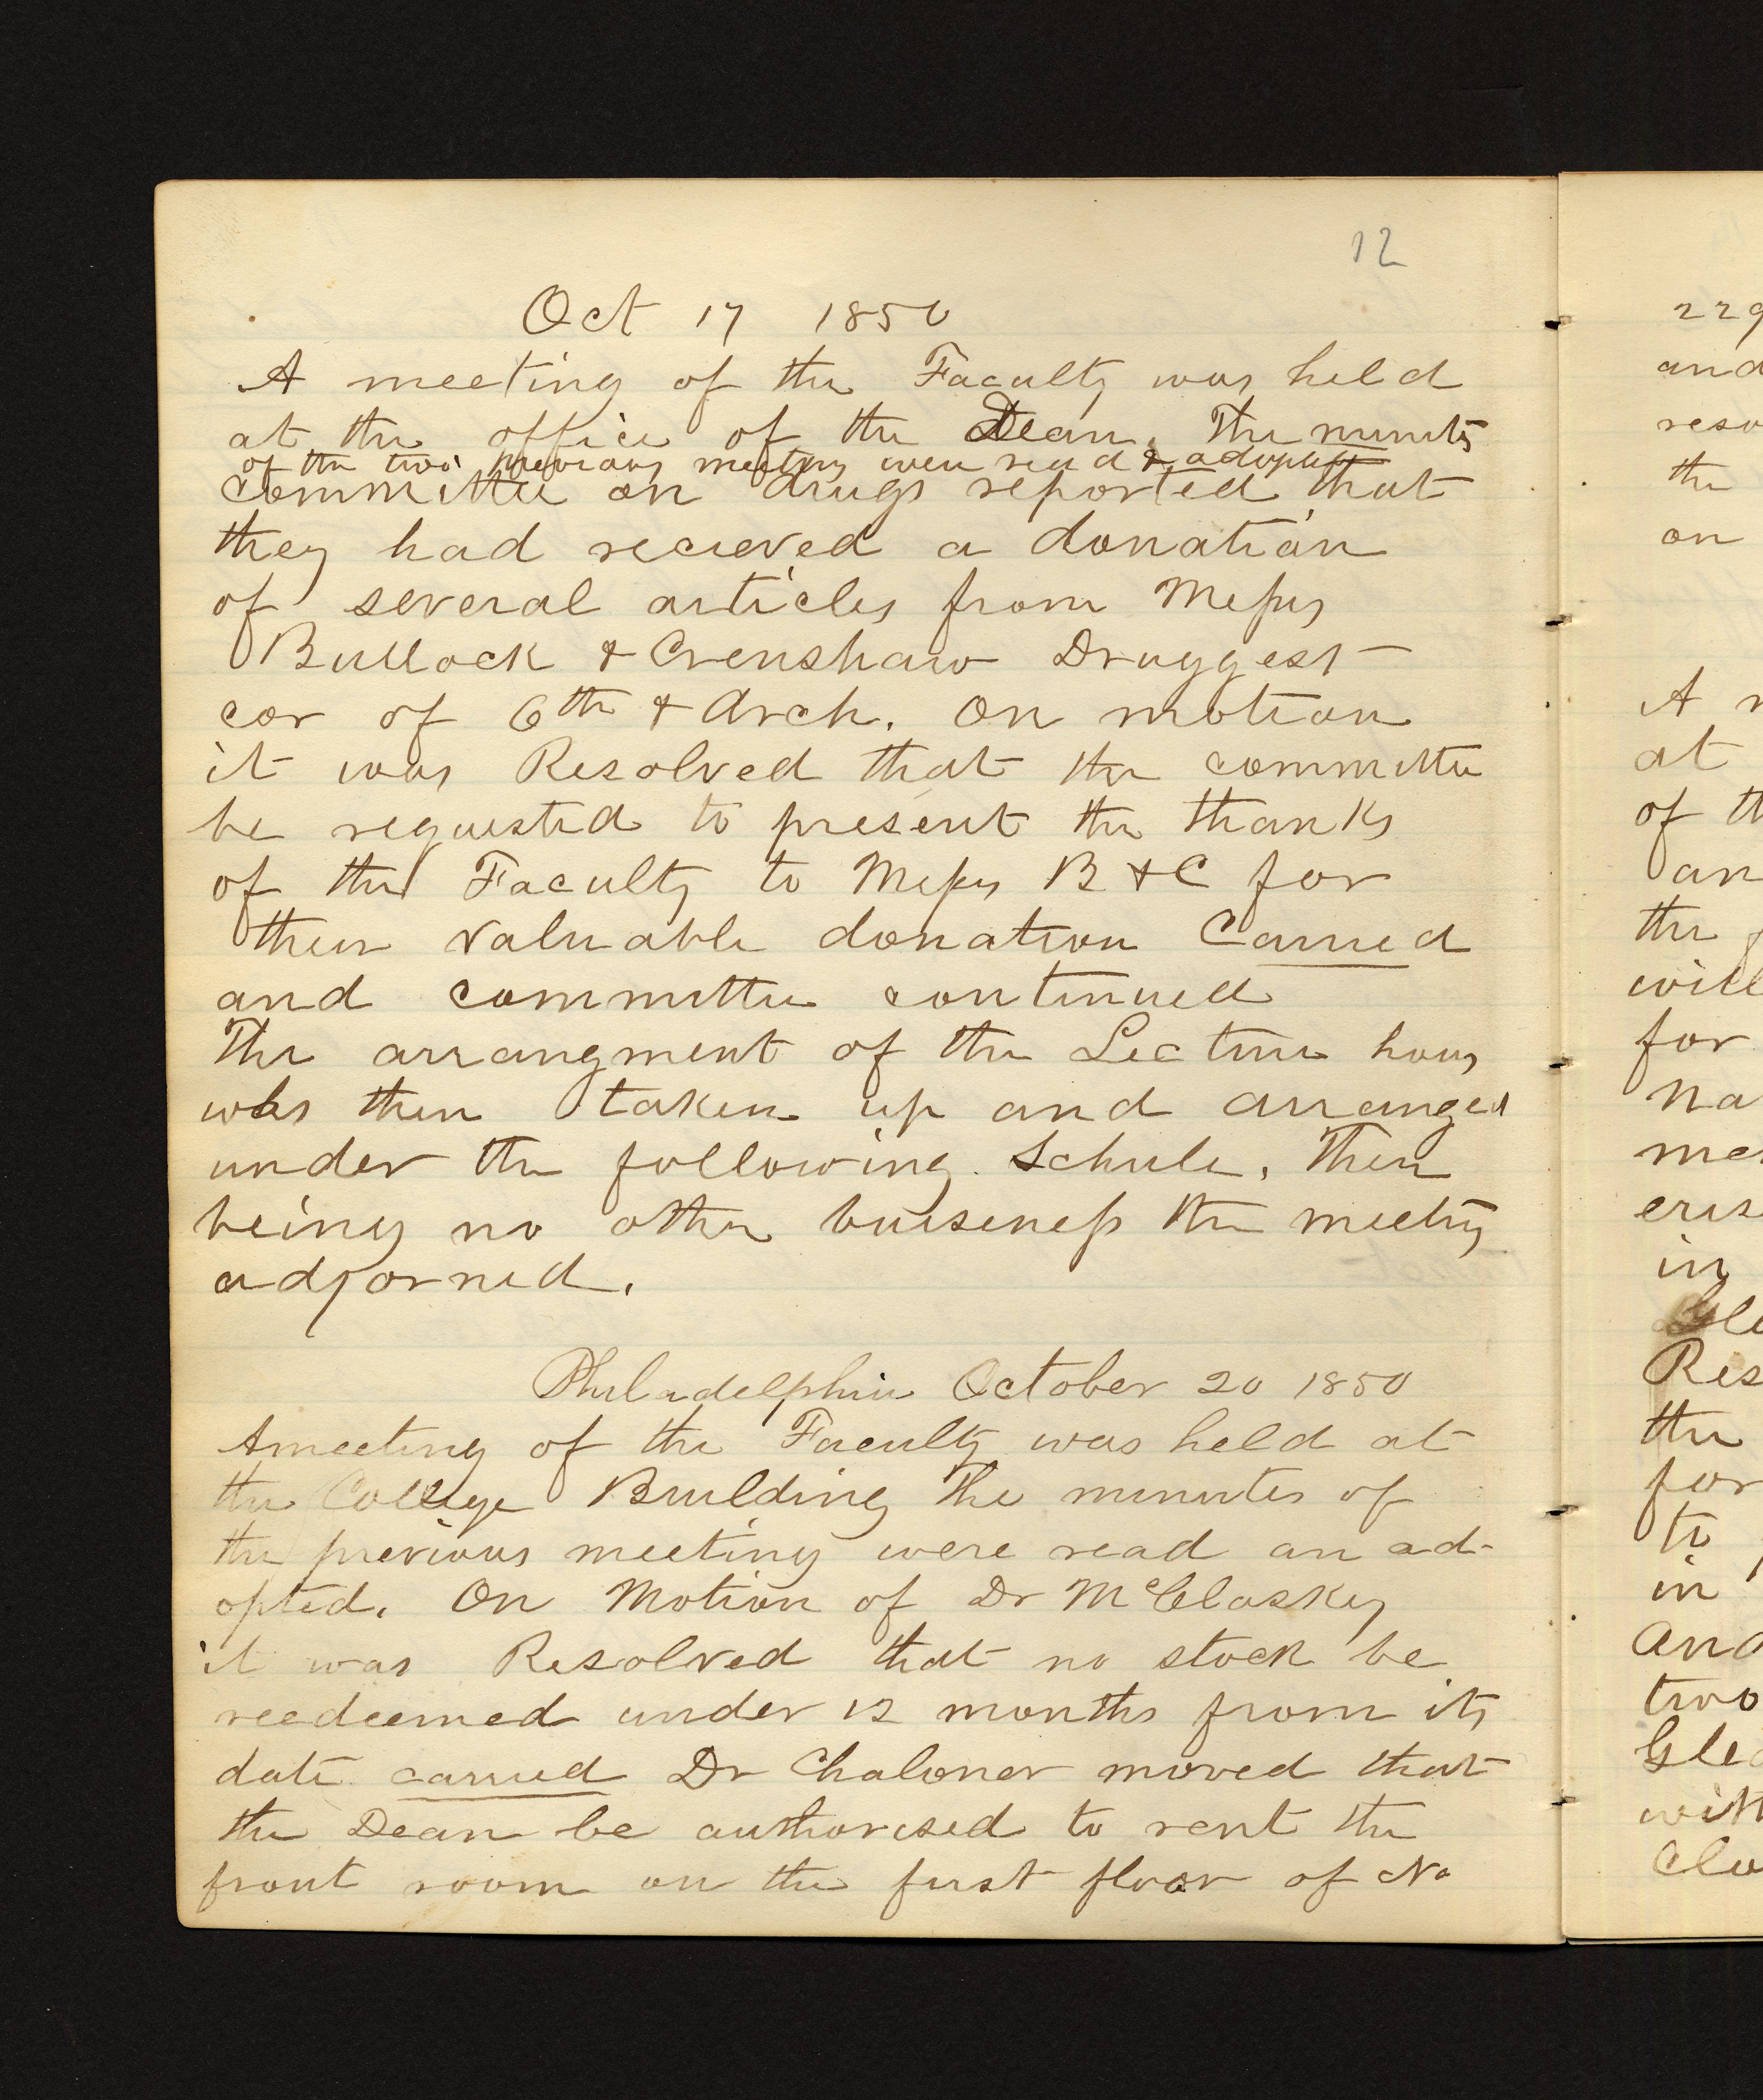 12
Oct 17 1850
A meeting of the Faculty was held
at the office of the Dean. The minuts
of the two previous meeting were read & adopted
committee on drugs reported that
they had recieved a donation
of several articles from Messrs
Bullock & Crenshaw Druggest
cor of 6th & Arch. On motion
it was Resolved that the committee
be requested to present the thanks
of the Faculty to Messrs B & C for
their valuable donation Carried
and committee continued
The arrangment of the Lecture hours
was then taken up and arranged
under the following Schule. There
being no other buiseness the meeting
adjorned.
Philadelphia October 20 1850
A meeting of the Faculty was held at
the College Building The minutes of
the previous meeting were read an ad-
opted. On Motion of Dr McCloskey
it was Resolved that no stock be
reedeemed under 12 months from its
date carried Dr Chaloner moved that
the Dean be authorised to rent the
front room on the first floor of No
229
and
the
on
A
at
of th
an
the
will
for
in
Res
the
for
to
in
and
two
Glea
with
Clo